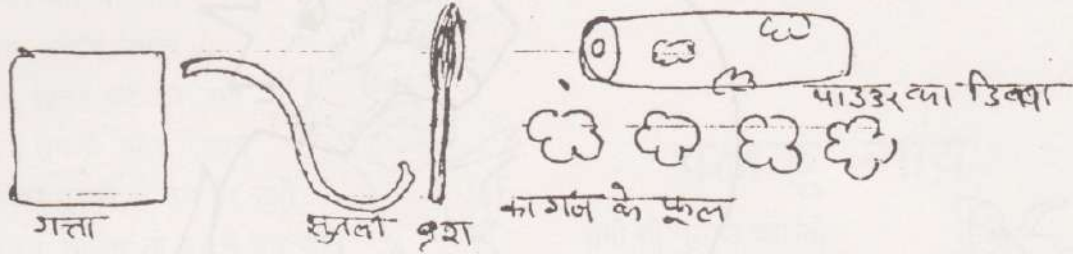 पाउडर का डिब्बा
गत्ता
सुतली
ब्रश
कागज के फूल